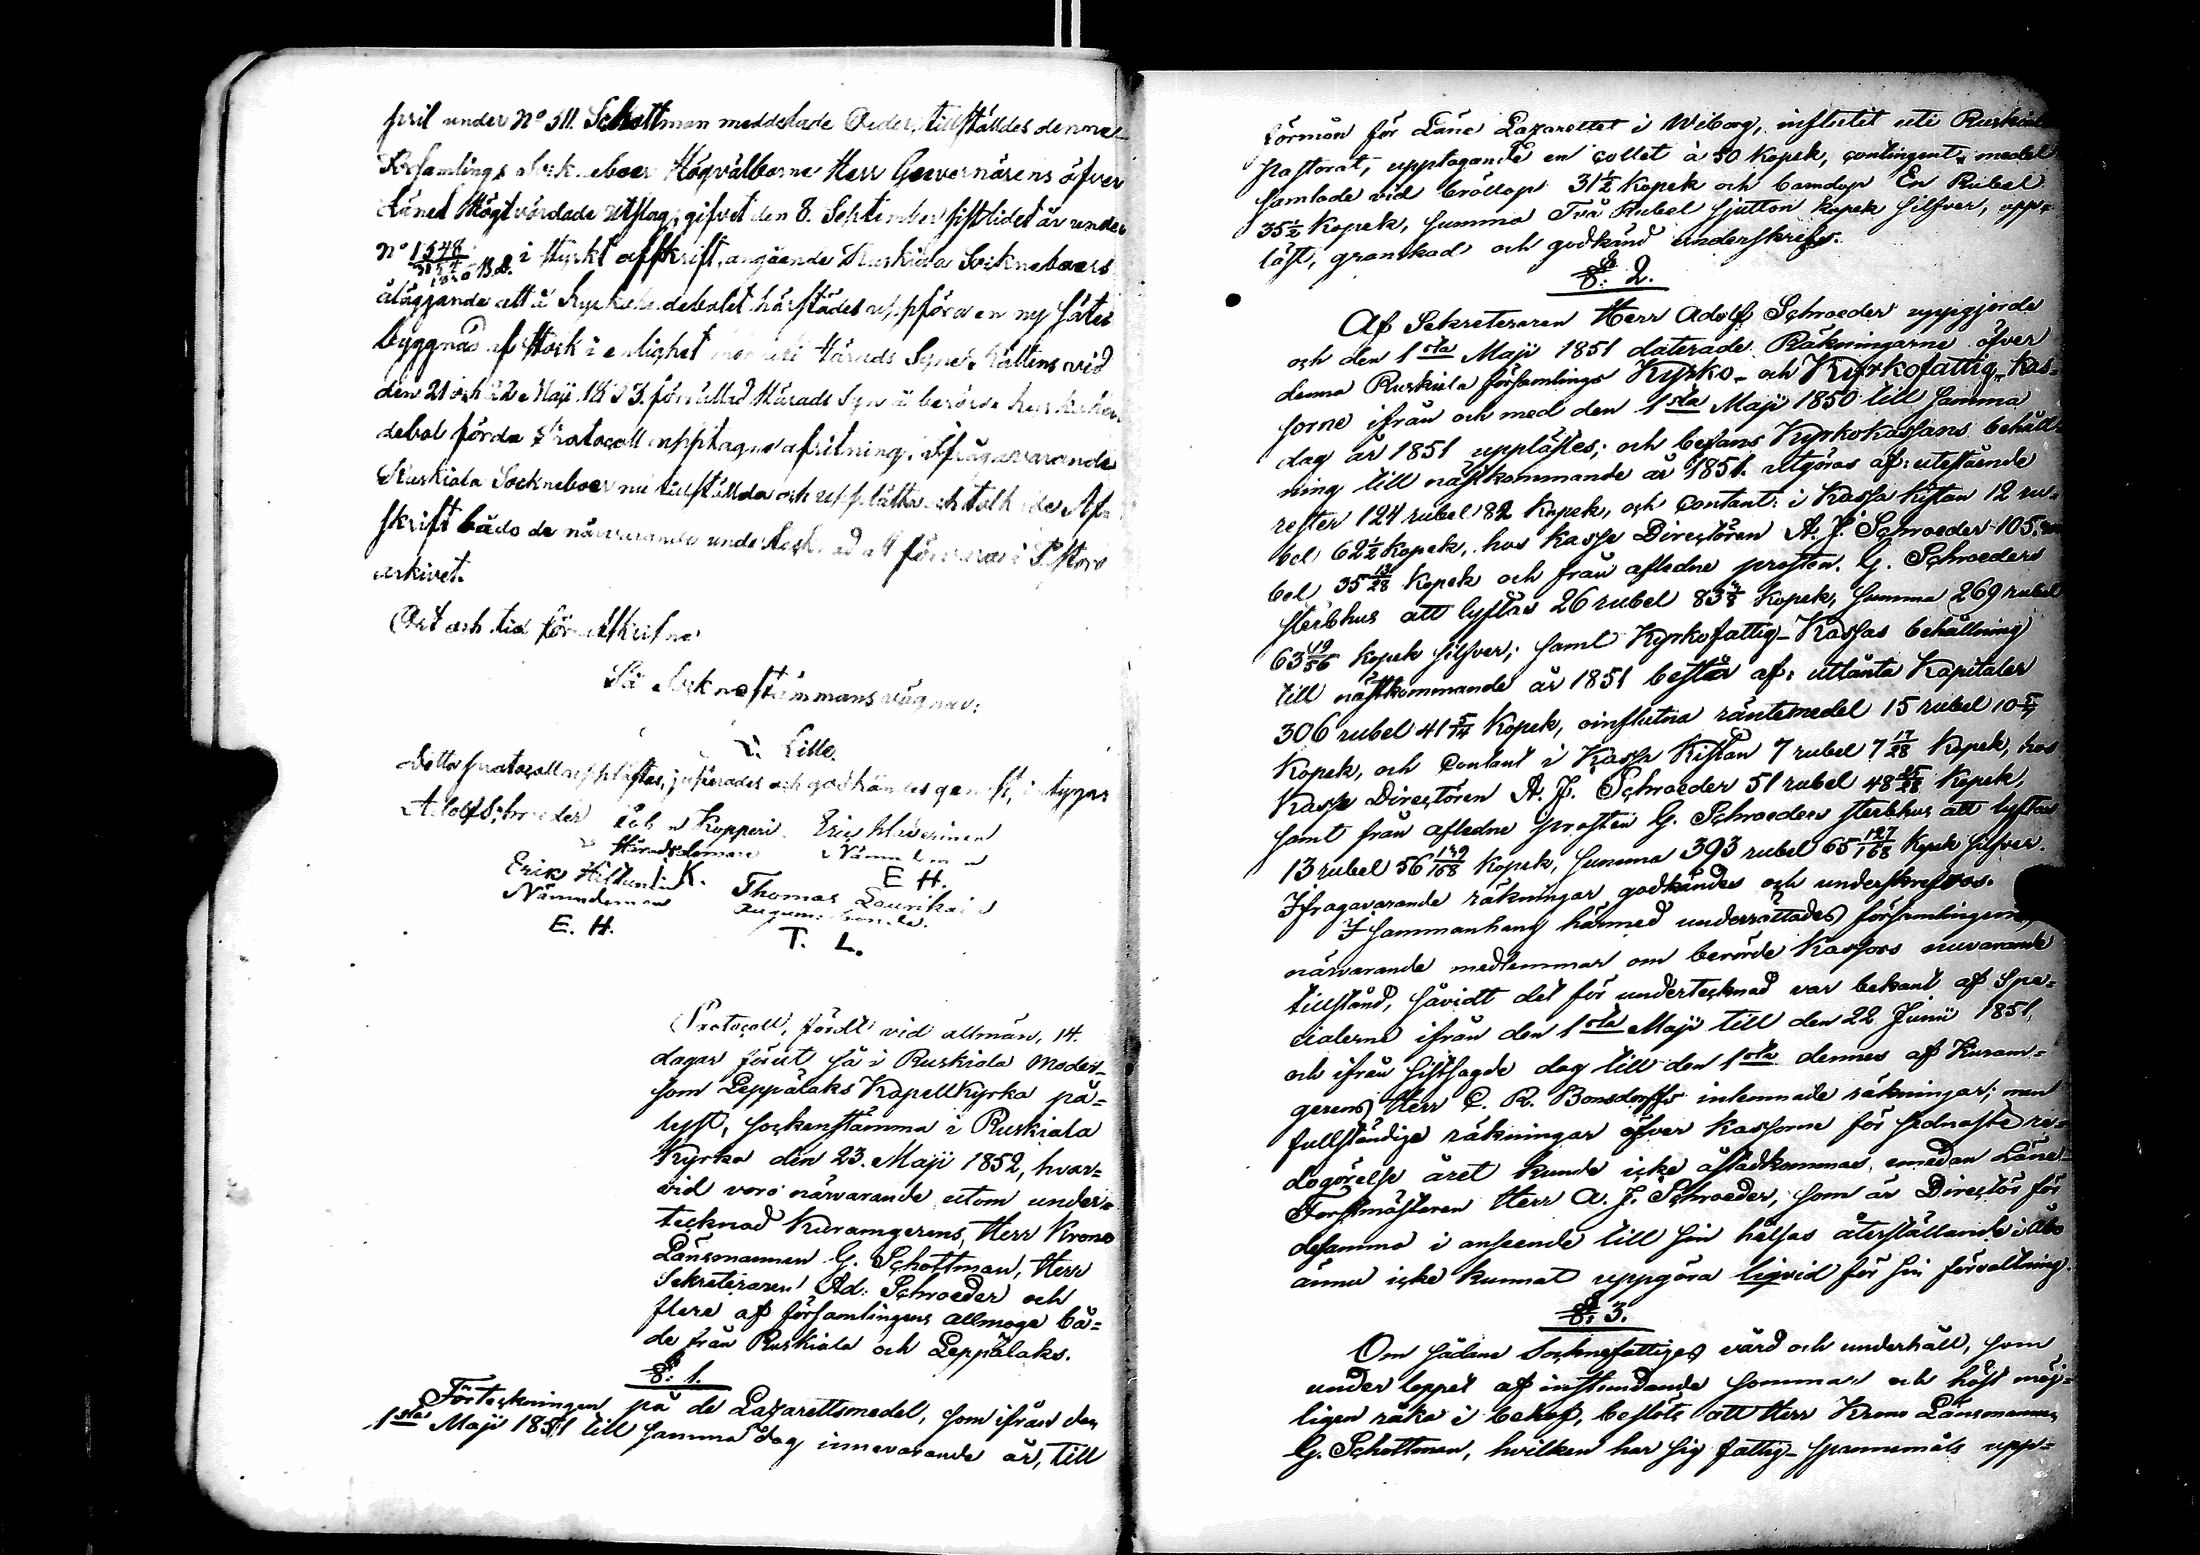 pril under No 511. Schottman meddelade Order, tillställdes denna
Församlings Sockneboer Högvälborne Herr Gouvernörens öfver
Länet Högtvördade Utslag, gifvet den 8. September sistlidet år under
No 1548 i styrkt afskrift, angående Ruskiala Sockneboers
åläggande att å Kyrkoherdebolet härstädes uppföra en ny sätes
byggnad af stock i enlighet med uti Härads Syne Rättens vid
den 21 och 22 Maji förrättad Härads Syn å berörde Kyrkoherde
debol förda Protocoll upptagne afritning. Ifrågavarande
Ruskiala Sockneboer nu tillställda och upplästa och tolkade Af-
skrift bådo de närvarande undertecknad att förvara i Pastors
arkivet.
Ort och tid förutskrifne
På Socknestämmans vägnar:
Lille.
Detta protocoll upplästes, justerades och godkändes genast, intygar
Adolf Schroeder Kopperi Eric Hiverinen
Häradsdomare Nämndeman
Erik Hiltunen K. E H.
Nämndeman Thomas Laurikai
E. H.
T. L.
Protocoll, fördt vid allmän, 14.
dagar förut så i Ruskiala Moder-
som Leppälaks Kapellkyrka på=
lyst, sockenstämma i Ruskiala
Kyrka den 23. Maji 1852, hvar=
vid voro närvarande utom under=
tecknad Kuramgerens, Herr Krono
Länsmannen G. Schottman, Herr
Sekreteraren Ad: Schroeder och
flere af församlingens allmoge bå=
de från Ruskiala och Leppälaks.
§: 1.
Förteckningen på de Lazarettsmedel, som ifrån den
1sta Maji 1851 till samma dag innevarande år, till
förmån för Läns Lazarettet i Wiborg, influtit uti Ruskiala
Pastorat, upptagande en collet à 50 Kopek, contingent-medel
samlade vid bröllop 31½ Kopek och barndop En Rubel
35½ Kopek, summa Två Rubel sjutton Kopek silfver, upp=
läst, granskad och godkänd underskrefs.
§: 2.
Af Sekreteraren Herr Adolf Schroeder uppgjorde
och den 1sta Maji 1851 daterade Räkningarne öfver
denna Ruskiala församlings Kyrko- och Kyrkofattig-Kas-
sorne ifrån och med den 1sta Maji 1850 till samma
dag år 1851 upplästes; och befans Kyrkokassans behåll-
ning till nästkommande år 1851. utgöras af: utestående
rester 124 rubel 82 Kopek, och Contant: i Kassa Kistan 12 ru=
bel 62½ Kopek, hos Kassa Directören A. J. Schroeder 105. ru
bel 35 13/28 Kopek och från afledne prosten. G. Schroeders
sterbhus att lyftas 26 rubel 83 Kopek, summa 269 rubel
63 19/56 Kopek silfver; samt Kyrkofattig-Kassas behållning
till nästkommande år 1851 består af: utlånta Kapitaler
306 rubel 41 5/14 Kopek, oinflutna räntemedel 15 rubel 10
Kopek, och Contant i Kassa Kistan 7 rubel 7 17/28 Kopek, hos
Kassa Directören A. J. Schroeder 51 rubel 48 Kopek,
samt från afledne Prosten G. Schroeders sterbhus att lyftas
13 rubel 56 139/168 Kopek, summa 393 rubel 65 127/168 Kopek silfver.
Ifragavarande räkningar godkändes och underskrefvos.
I sammanhang härmed underrättades församlingens
närvarande medlemmar om berörde Kassors nuvarande
tillstånd, såvidt det för undertecknad var bekant af Spe=
cialerne ifrån den 1sta Maji till den 22 Junii 1851,
och ifrån sistsagde dag till den 1sta dennes af Kuram=
gerens Herr C. R. Bonsdorffs inlemnade räkningar; men
fullständiga räkningar öfver kassorne för sednaste re=
dogörelse året kunde icke åstadkommas, emedan Läns-
Forstmästaren Herr A. J. Schroeder, som är Directör för
desamma i anseende till sin hälsas återställande i Åbo
ännu icke kunnat uppgöra liqvid för sin förvaltning.
§: 3.
Om sådane Socknefattiges vård och underhåll, som
under loppet af instundande sommar och höst möj=
ligen råka i behof, beslöts att Herr Krono Länsmannen
G. Schottman, hvilken har sig fattig-spannemåls upp=